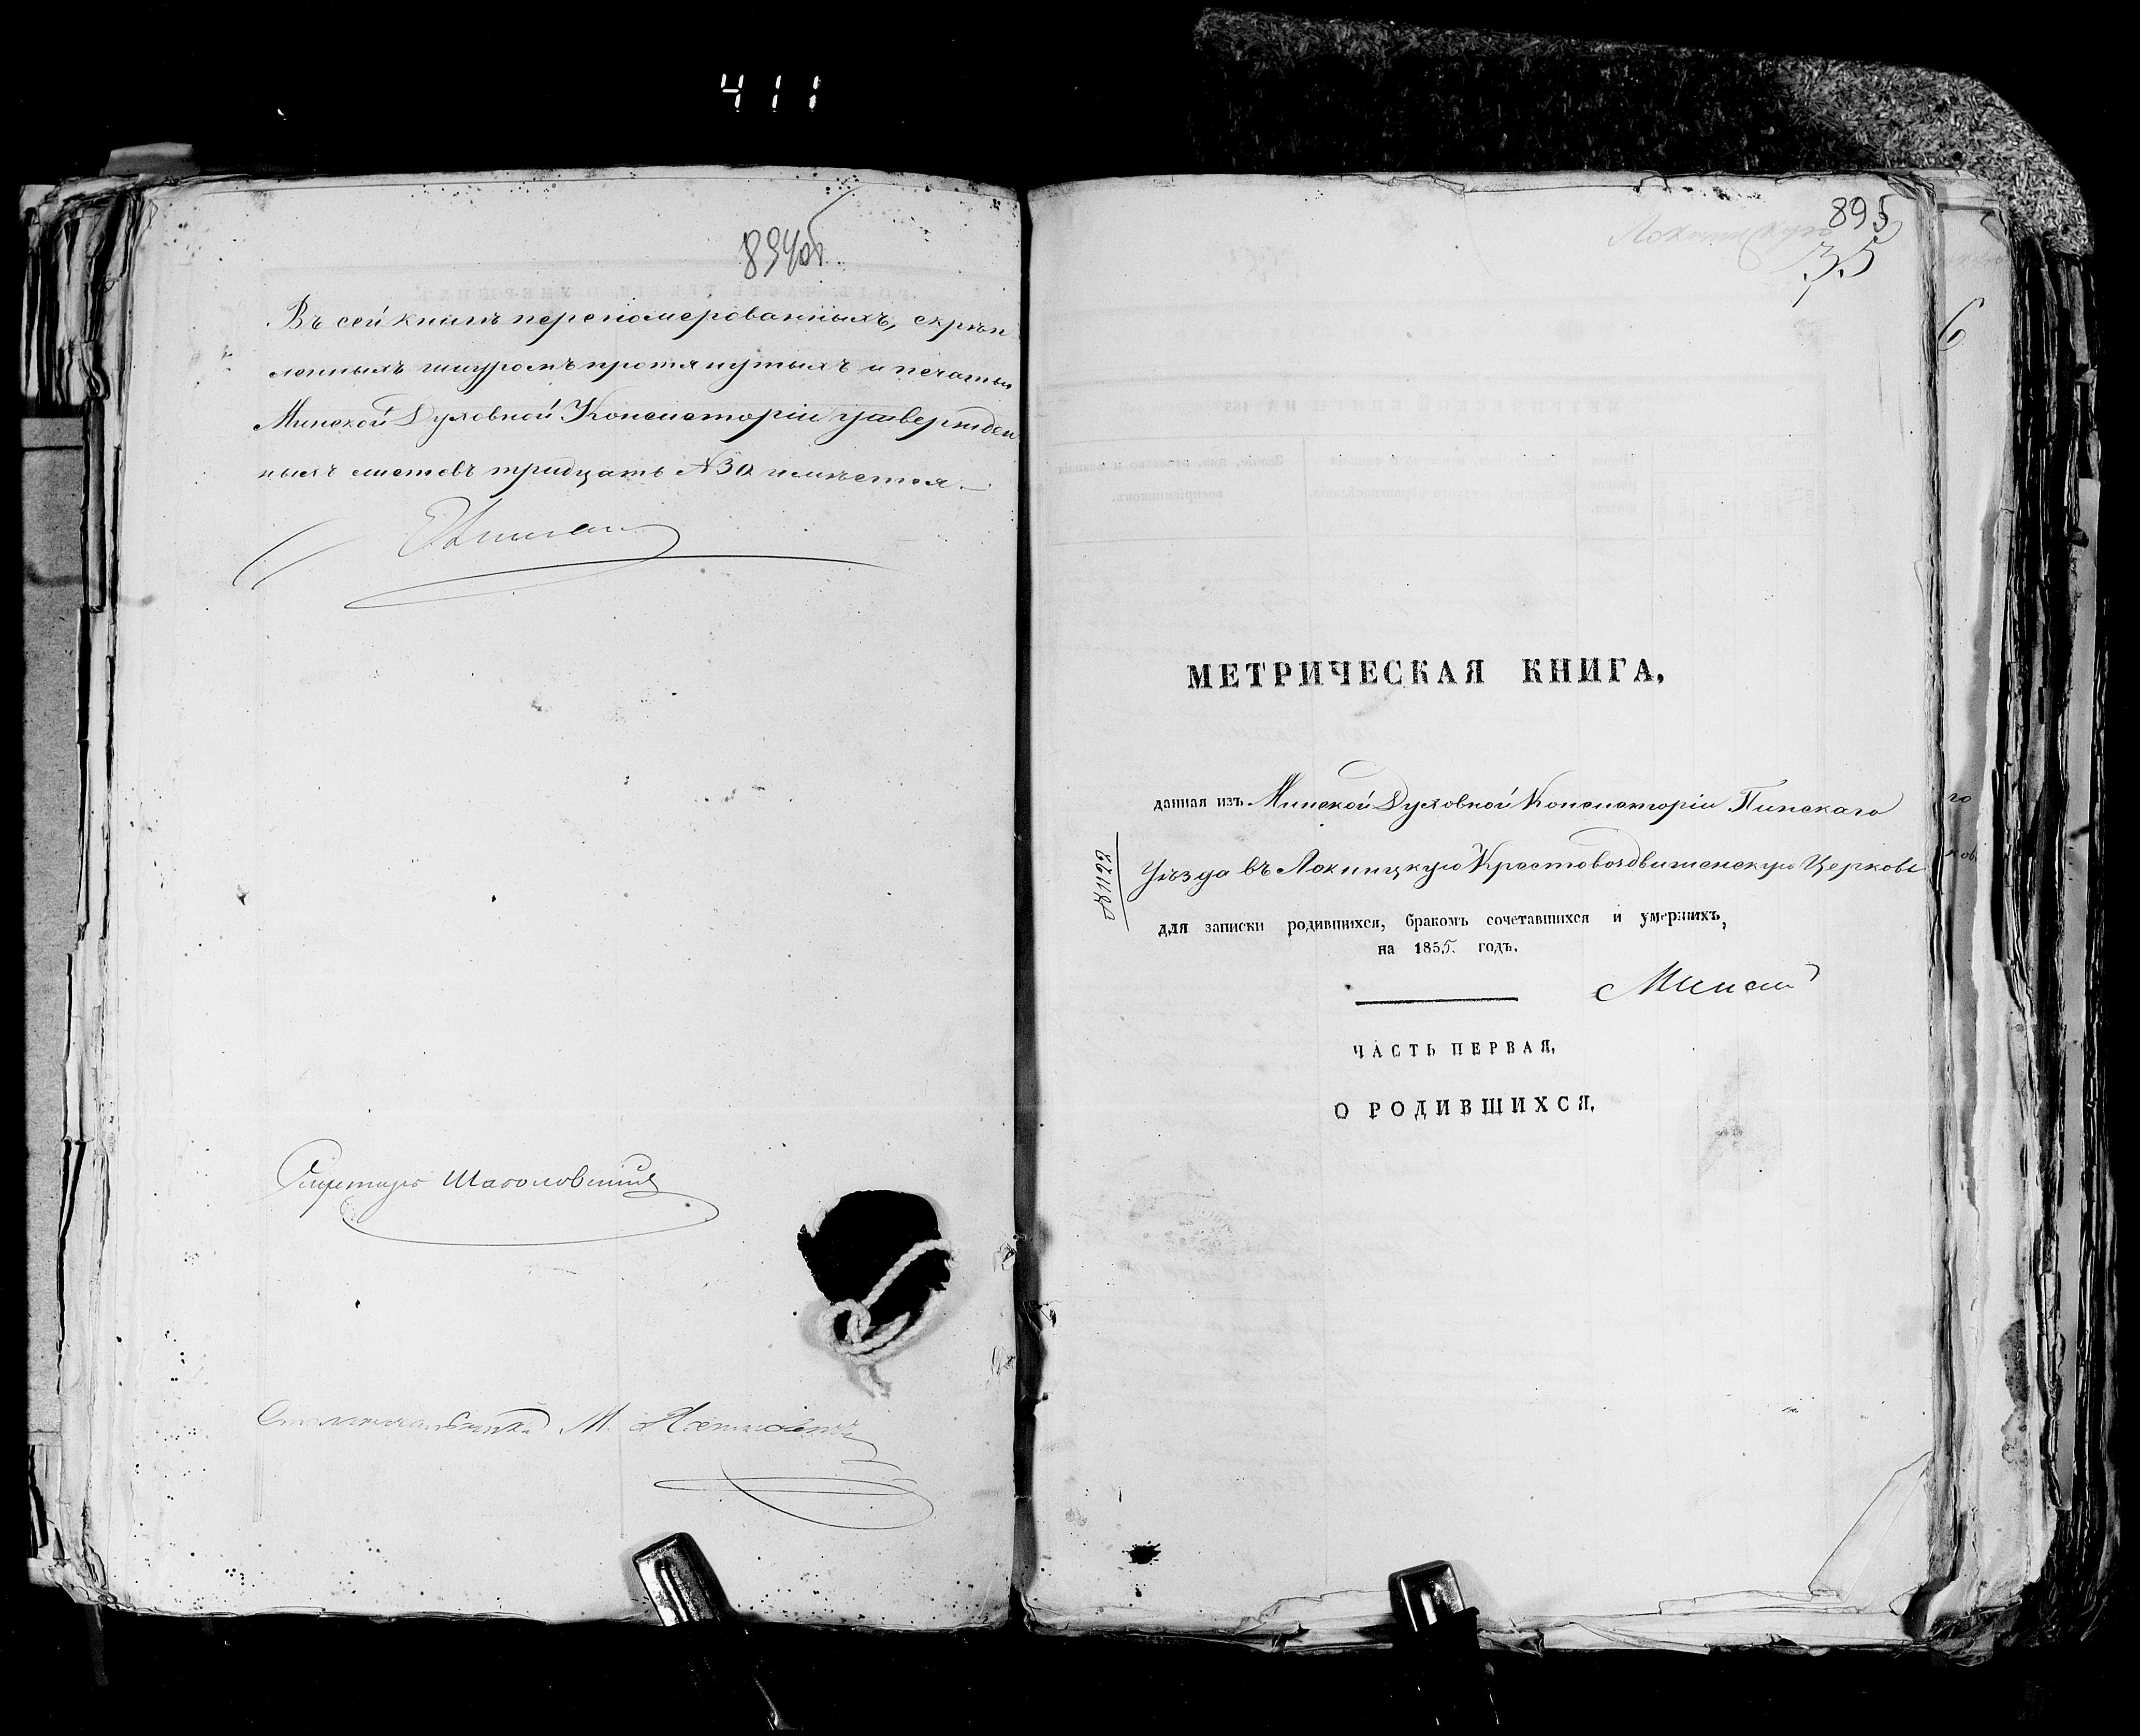 411
894об
Въ сей книгѣ перепомерованныхъ, скрѣп
ленныхъ шнуромъ протянутыхъ и печатью
Минской Духовной Консисторіи утвержден
ныхъ листовъ тридцать №30 имѣется.
Секретарь
Столоначальникъ М.
895
35
Локницкую
6
МЕТРИЧЕСКАЯ КНИГА,
данная изъ Минской Духовной Консисторіи Пинскаго
го
Уѣзда въ Локницкую Крестовоздвиженскую Церковь
ковь
№1122
для записки родившихся, бракомъ сочетавшихся и умершихъ,
на 1855. годъ.
ЧАСТЬ ПЕРВАЯ,
О РОДИВШИХСЯ.